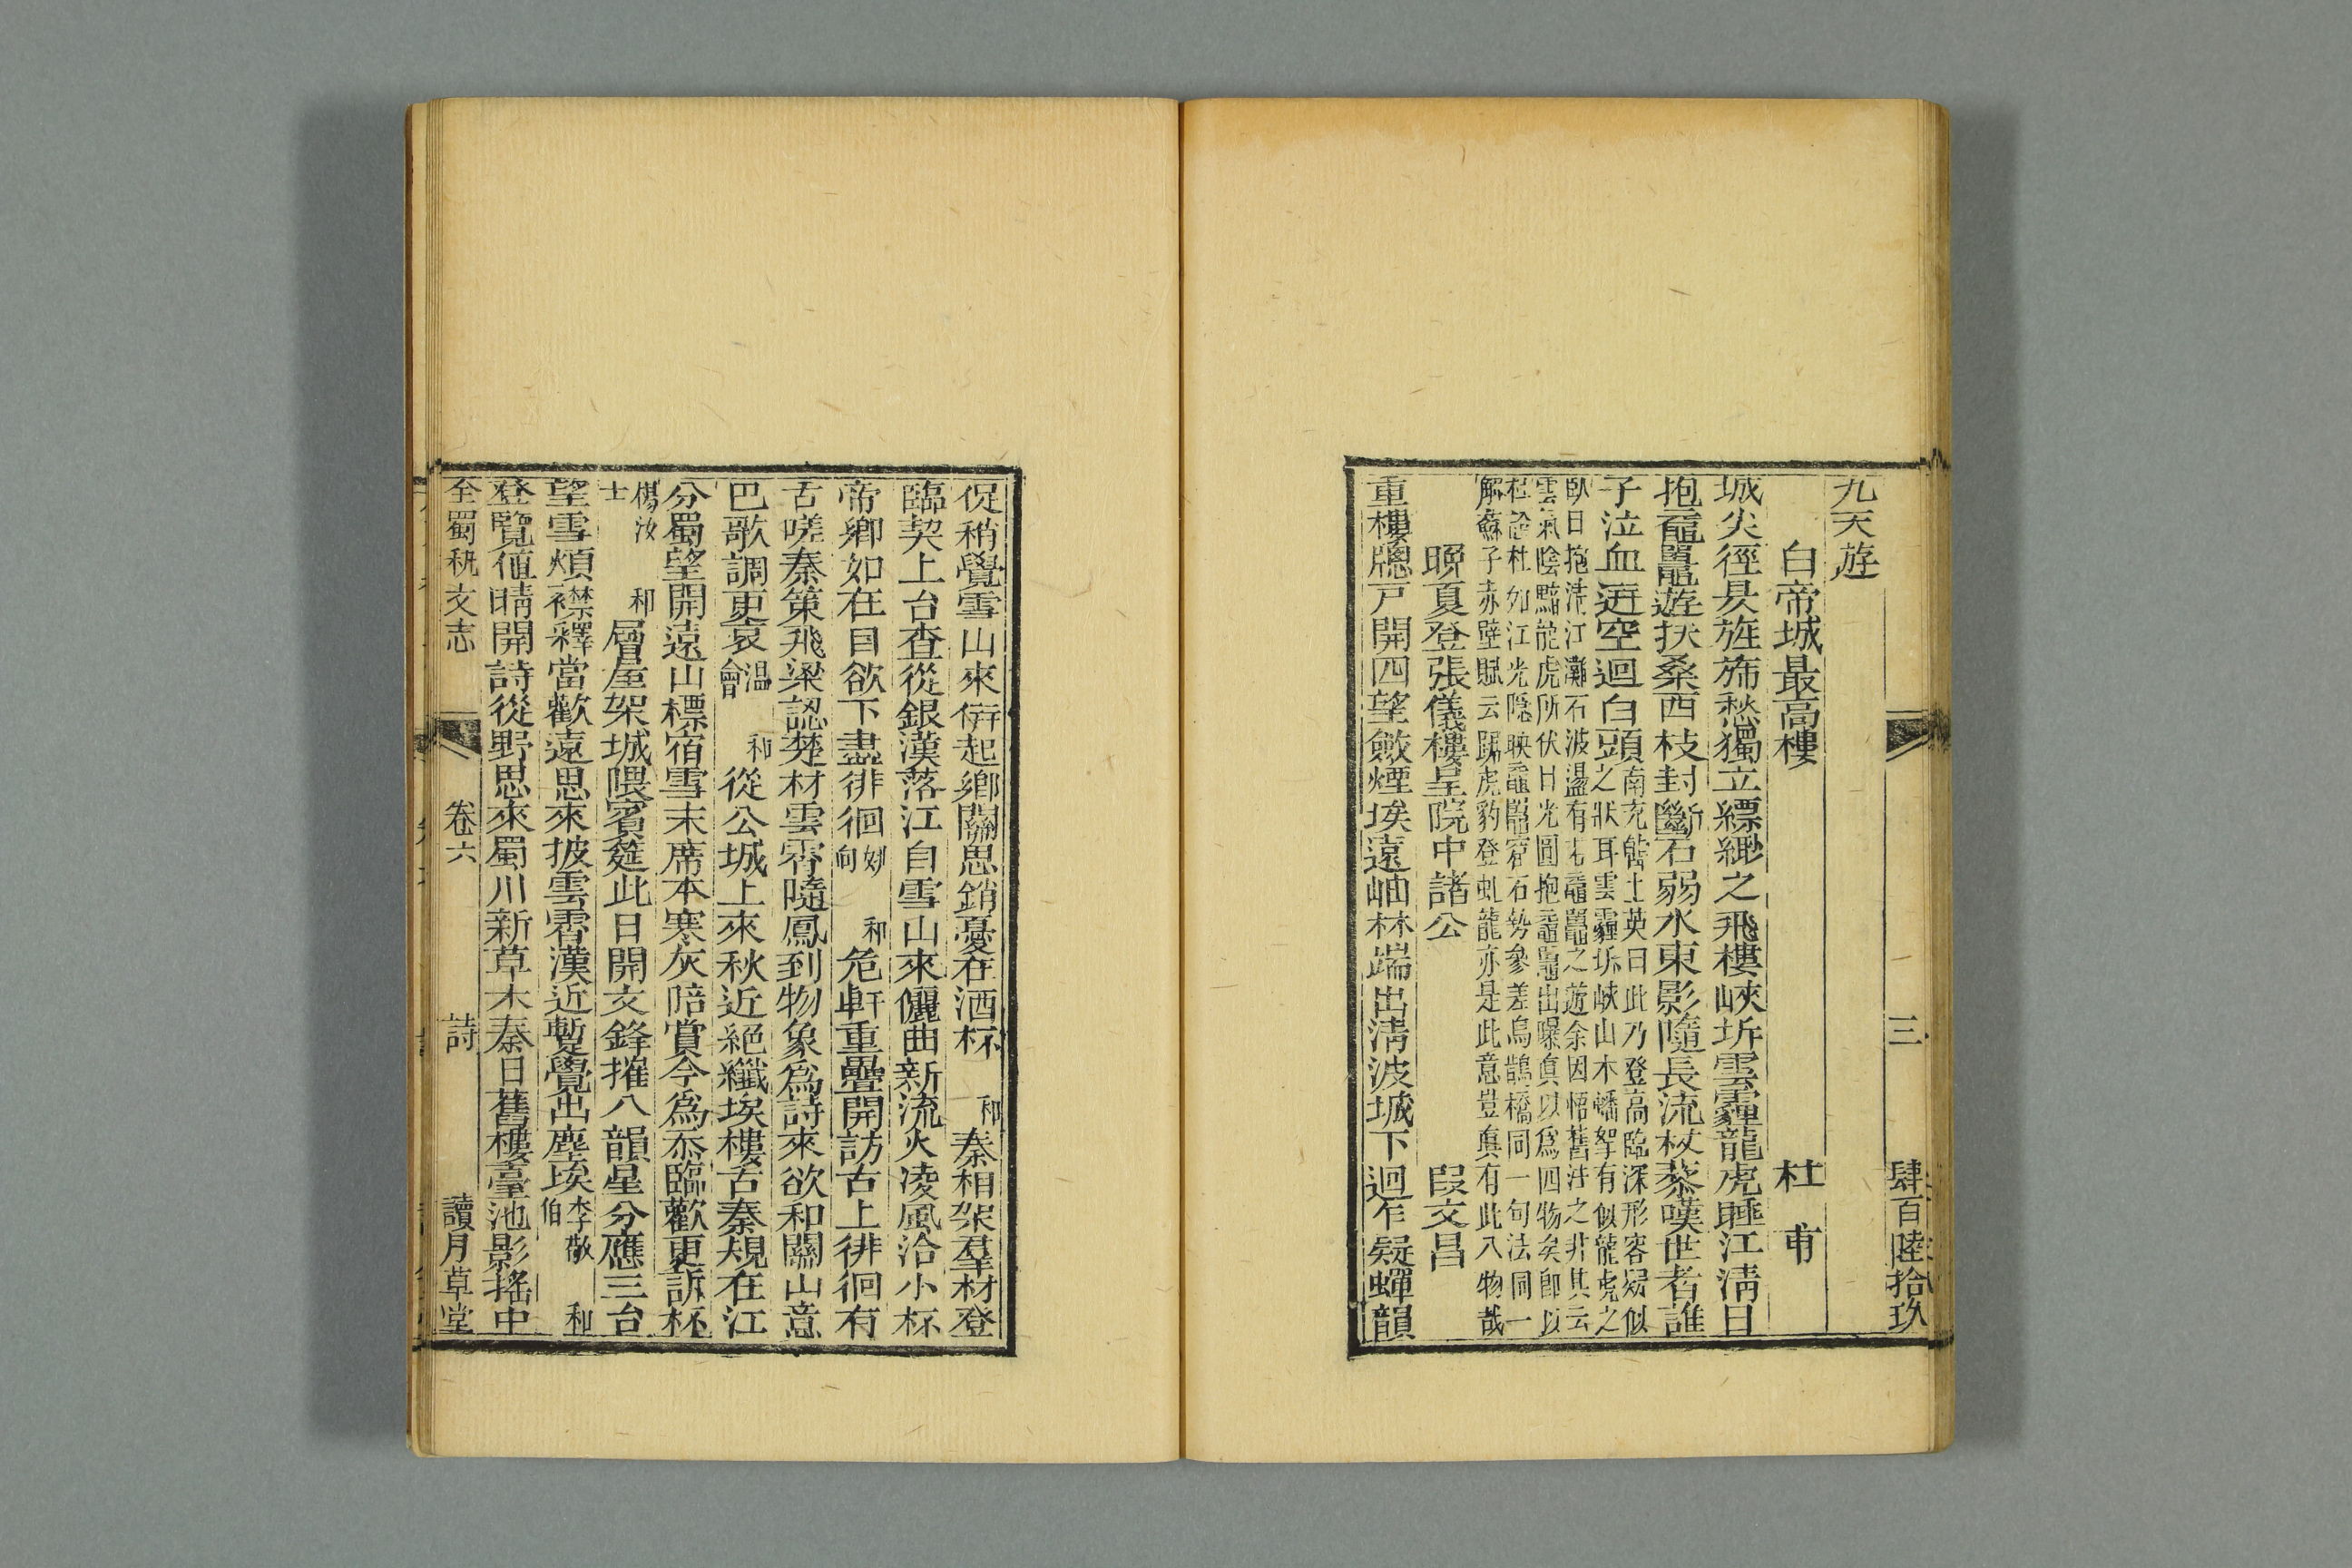 三
肆百陸拾玖
九天遊
白帝城最高樓
杜甫
城尖徑昃旌旆愁獨立縹緲之飛樓峽坼雲霾龍虎睡江清日
抱黿鼉遊扶桑西枝封斷石弱水東影隨長流杖藜嘆世者誰
子泣血迸空迴白頭
南充韓士英曰此乃登高臨深形容疑似
之狀耳雲霾坼峽山木蟠拏有似龍虎之
臥日抱清江灘石波盪有若黿鼉之遊余因悟舊註之非其云
雲氣陰黯龍虎所伏日光圓抱黿鼉出曝眞以爲四物矣卽以
杜詮杜如江光隱映黿鼉窟石勢參差烏鵲橋同一句法同一
解蘇子赤壁賦云踞虎豹登虬龍亦是此意豈眞有此八物哉
晚夏登張儀樓呈院中諸公
段文昌
重樓牕戸開四望斂煙埃遠岫林端出清波城下迴乍疑蟬韻
促稍覺雪山來併起鄉關思銷憂在酒杯
和
秦相架羣材登
臨契上台查從銀漢落江自雪山來儷曲新流火凌風洽小杯
帝鄉如在目欲下盡徘徊
姚
向
和
危軒重疊開訪古上徘徊有
舌嗟秦策飛梁認楚材雲霄隨鳳到物象爲詩來欲和關山意
巴歌調更哀
温
會
和
從公城上來秋近絕纖埃樓古秦規在江
分蜀望開遠山標宿雪末席本寒灰陪賞今爲忝臨歡更訴杯
楊汝
士
和
層屋架城隈賓筵此日開文鋒摧八韻星分應三台
望雪煩襟釋當歡遠思來披雲霄漢近暫覺出塵埃
李敬
伯
和
登覽値晴開詩從野思來蜀川新草木秦日舊樓臺池影搖中
全蜀秇文志
卷六
詩
讀月草堂